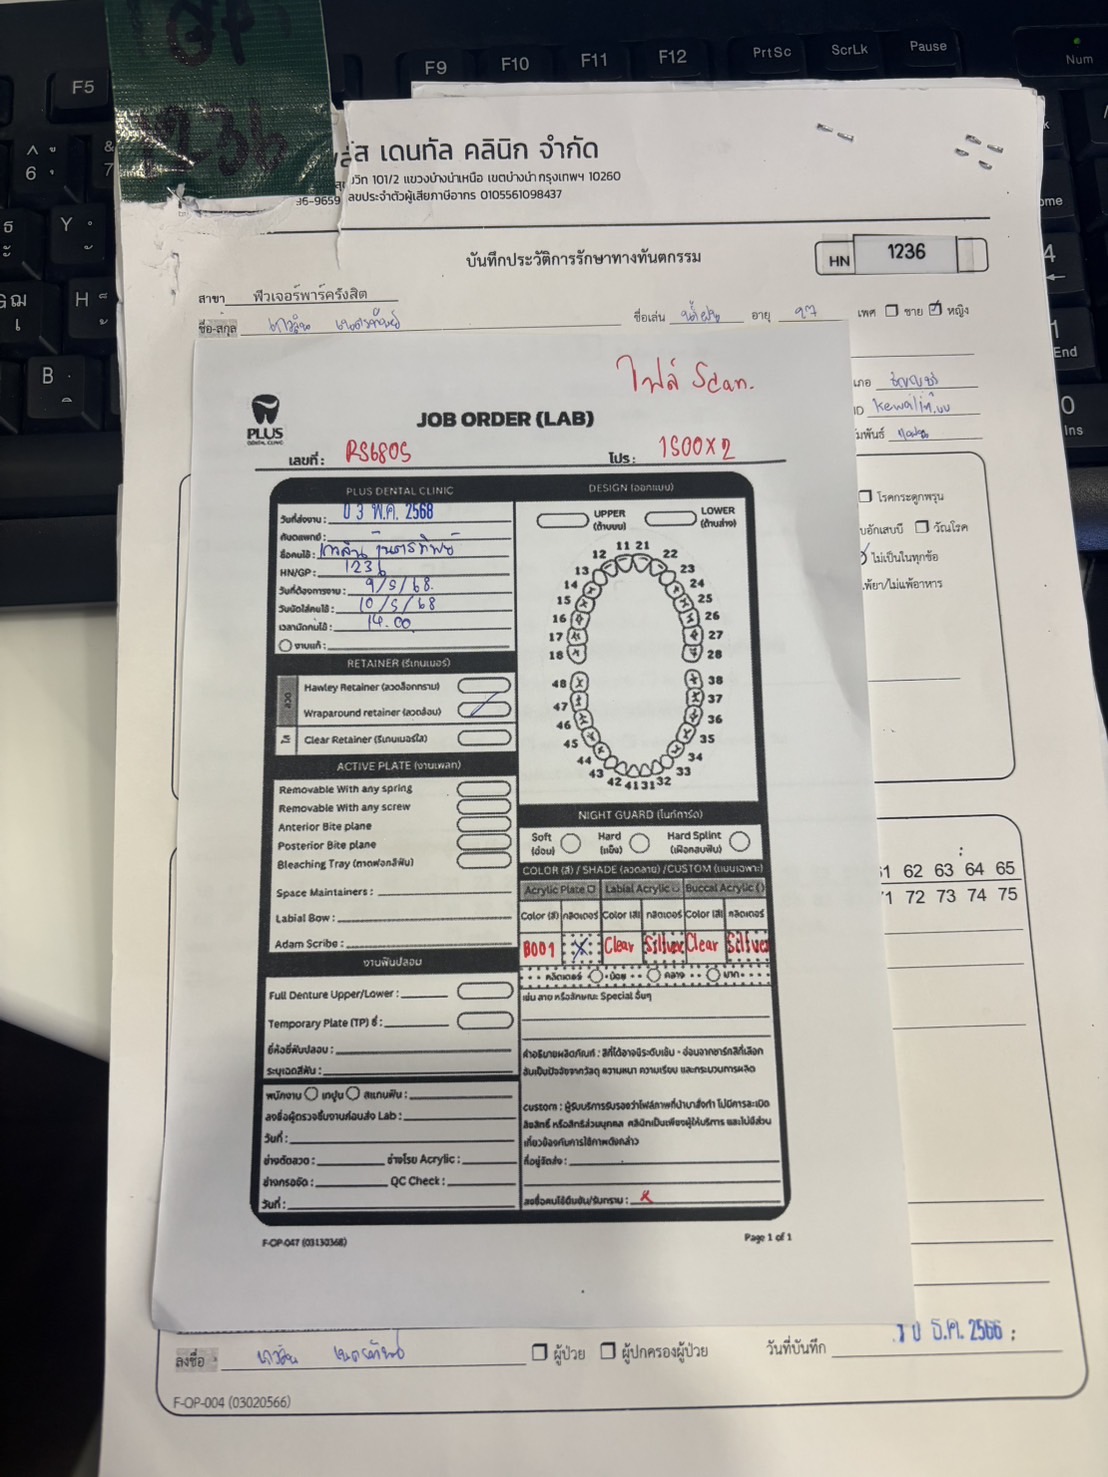 F5 F9 F10 F11 F12 PrtSc ScrLk Pause Num
GP
1236
ส เดนทัล คลินิก จำกัด
101/2 แขวงบางนาเหนือ เขตบางนา กรุงเทพฯ 10260
36-9659 ลขประจำตัวผู้เสียภาษีอากร 0105561098437
บันทึกประวัติการรักษาทางทันตกรรม
HN 1236
สาขา ฟิวเจอร์พาร์ครังสิต
ชื่อ-สกุล ชื่อเล่น อายุ เพศ ชาย หญิง
ไฟล์ Scan.
PLUS
DENTAL CLINIC
JOB ORDER (LAB)
เลขที่ : RS6805 โปร : 1500x2
ID kewalin.uu
โรคกระดูกพรุน
บอักเสบบี วัณโรค
ไม่เป็นในทุกข้อ
ไม่แพ้อาหาร
PLUS DENTAL CLINIC
วันที่ส่งงาน : 03 พ.ค. 2568
ทันตแพทย์ :
ชื่อคนไข้ :
HN/GP : 1236
วันที่ต้องการงาน : 9/5/68.
วันนัดใส่คนไข้ : 10/5/68
เวลานัดคนไข้ : 14.00
งานแก้ :
RETAINER (รีเทนเนอร์)
ลวด
Hawley Retainer (ลวดล็อกกราม)
Wraparound retainer (ลวดล้อม)
ใส
Clear Retainer (รีเทนเนอร์ใส)
ACTIVE PLATE (งานเพลท)
Removable With any spring
Removable With any screw
Anterior Bite plane
Posterior Bite plane
Bleaching Tray (ถาดฟอกสีฟัน)
Space Maintainers :
Labial Bow :
Adam Scribe :
งานฟันปลอม
Full Denture Upper/Lower :
Temporary Plate (TP) ซี่ :
ยี่ห้อซี่ฟันปลอม :
ระบุเฉดสีฟัน :
พนักงาน เทปูน สแกนฟัน :
ลงชื่อผู้ตรวจชิ้นงานก่อนส่ง Lab :
วันที่ :
ช่างดัดลวด : ช่างโรย Acrylic :
ช่างกรอขัด : QC Check :
วันที่ :
DESIGN (ออกแบบ)
UPPER (ด้านบน) LOWER (ด้านล่าง)
11 21
12 22
13 23
14 24
15 25
16 26
17 27
18 28
48 38
47 37
46 36
45 35
44 34
43 33
42 41 31 32
NIGHT GUARD (ไนท์การ์ด)
Soft (อ่อน) Hard (แข็ง) Hard Splint (เฝือกสบฟัน)
COLOR (สี) / SHADE (ลวดลาย) /CUSTOM (แบบเฉพาะ)
Acrylic Plate Labial Acrylic Buccal Acrylic
Color (สี) กลิตเตอร์ Color (สี) กลิตเตอร์ Color (สี) กลิตเตอร์
B001 X Clear Silver Clear Silver
กลิตเตอร์ น้อย กลาง มาก
เช่น ลาย หรือลักษณะ Special อื่นๆ
คำอธิบายผลิตภัณฑ์ : สีที่ได้อาจมีระดับเข้ม - อ่อนจากชาร์ทสีที่เลือก
อันเป็นปัจจัยจากวัสดุ ความหนา ความเรียบ และกระบวนการผลิต
custom : ผู้รับบริการรับรองว่าไฟล์ภาพที่นำมาสั่งทำ ไม่มีการละเมิด
ลิขสิทธิ์ หรือสิทธิส่วนบุคคล คลินิกเป็นเพียงผู้ให้บริการ และไม่มีส่วน
เกี่ยวข้องกับการใช้ภาพดังกล่าว
ที่อยู่จัดส่ง :
ลงชื่อคนไข้ยืนยัน/รับทราบ : x
F-OP-047 (03130368) Page 1 of 1
62 63 64 65
72 73 74 75
ลงชื่อ ผู้ป่วย ผู้ปกครองผู้ป่วย วันที่บันทึก 10 ธ.ค. 2566
F-OP-004 (03020566)